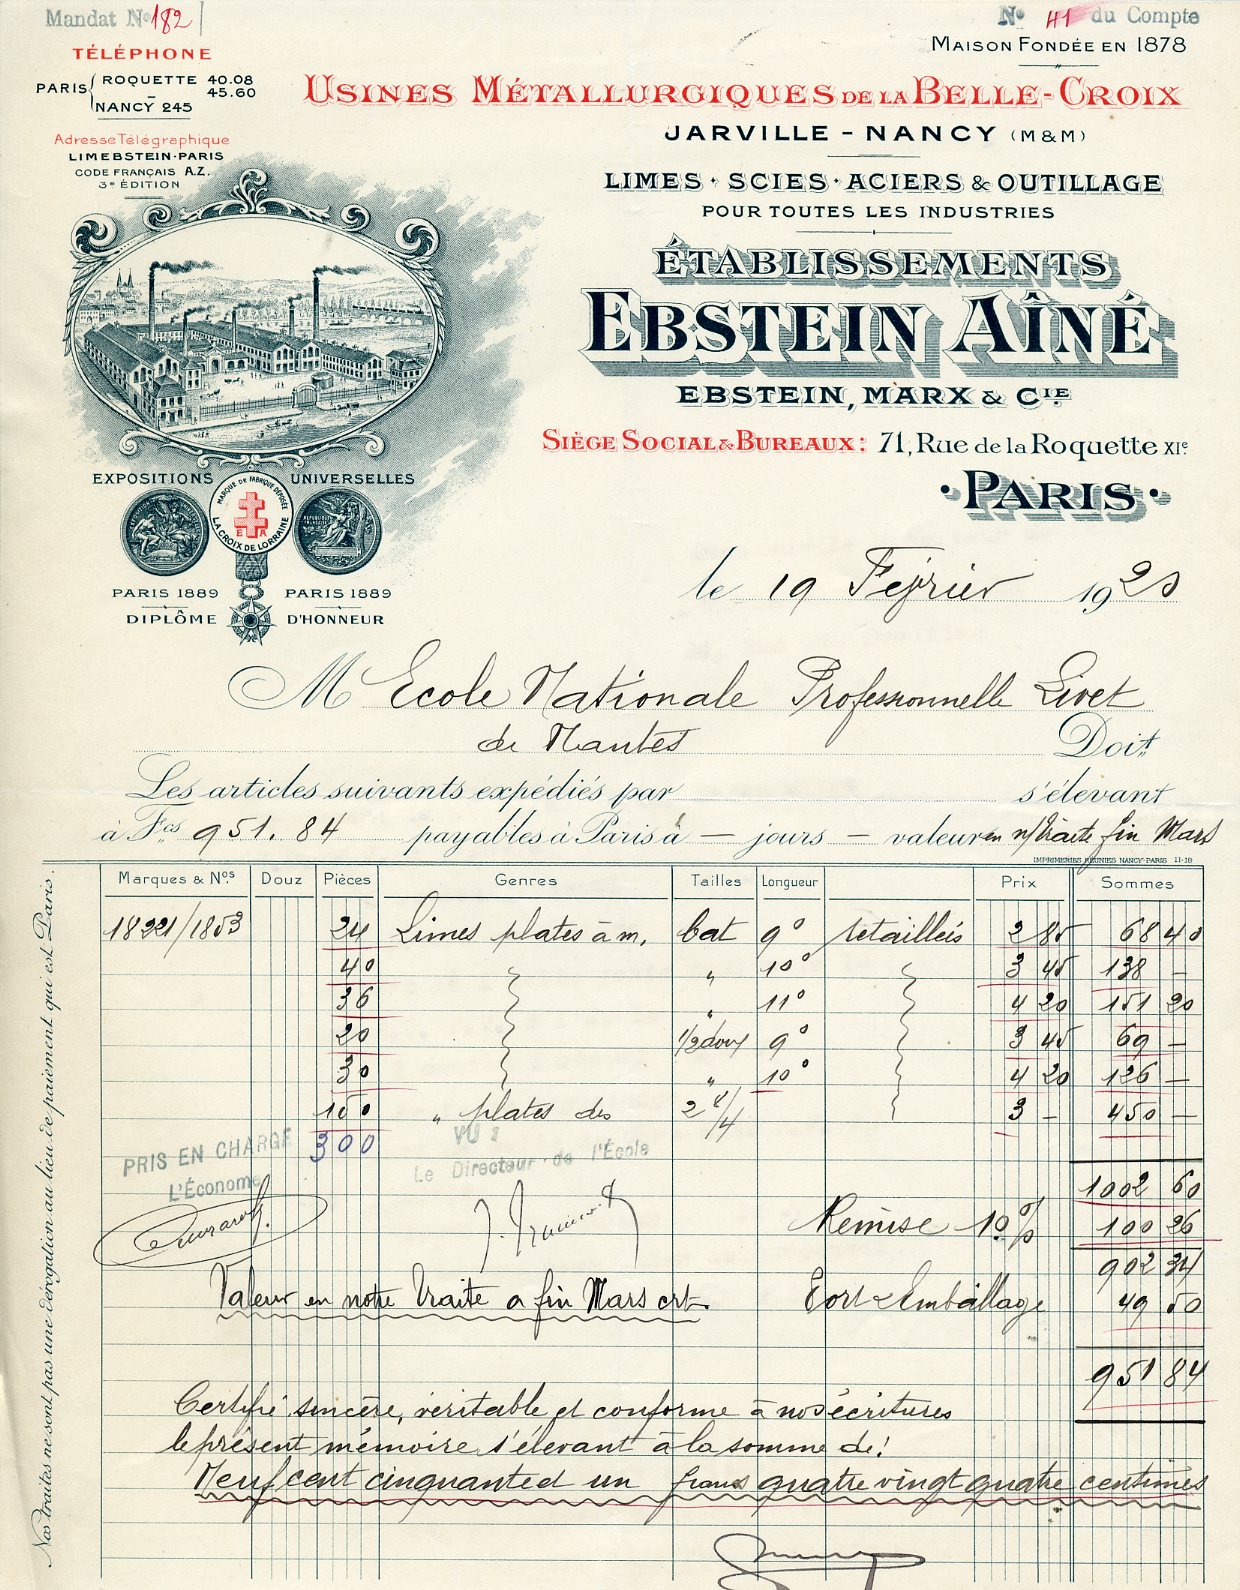 Mandat No 182
No 41 du Compte
TÉLÉPHONE
PARIS ROQUETTE 40.08
45.60
NANCY 245
Adresse Télégraphique
LIMEBSTEIN-PARIS
CODE FRANÇAIS A.Z.
3e ÉDITION
MAISON FONDÉE EN 1878
USINES MÉTALLURGIQUES DE LA BELLE-CROIX
JARVILLE - NANCY (M & M)
LIMES · SCIES · ACIERS & OUTILLAGE
POUR TOUTES LES INDUSTRIES
ÉTABLISSEMENTS
EBSTEIN AÎNÉ
EBSTEIN, MARX & CIE
SIÈGE SOCIAL & BUREAUX: 71, Rue de la Roquette XIe
·PARIS·
EXPOSITIONS UNIVERSELLES
MARQUE DE FABRIQUE DÉPOSÉE
E A
LA CROIX DE LORRAINE
PARIS 1889 PARIS 1889
DIPLÔME D'HONNEUR
le 19 Février 1920
M Ecole Nationale Professionnelle Livet
de Nantes Doit
Les articles suivants expédiés par s'élevant
à Fcs 951.84 payables à Paris à — jours — valeur en n/traite fin Mars
IMPRIMERIES RÉUNIES NANCY-PARIS 11-19
Marques & Nos Douz Pièces Genres Tailles Longueur Prix Sommes
18221/1853 24 Limes plates à m. bat 9° retaillées 2 85 68 40
40 " 10° 3 45 138 —
36 " 11° 4 20 151 20
20 1/2 doux 9° 3 45 69 —
30 " 10° 4 20 126 —
150 " plates des 2 8/4 3 — 450 —
300
PRIS EN CHARGE
L'Économe
VU :
Le Directeur de l'École
1002 60
Remise 10% 100 26
902 34
Valeur en notre traite a fin Mars crt. Port & Emballage 49 50
951 84
Certifié sincère, véritable et conforme à nos écritures
le présent mémoire s'élevant à la somme de:
Neuf cent cinquante et un francs quatre vingt quatre centimes
Nos traites ne sont pas une dérogation au lieu de paiement qui est Paris.